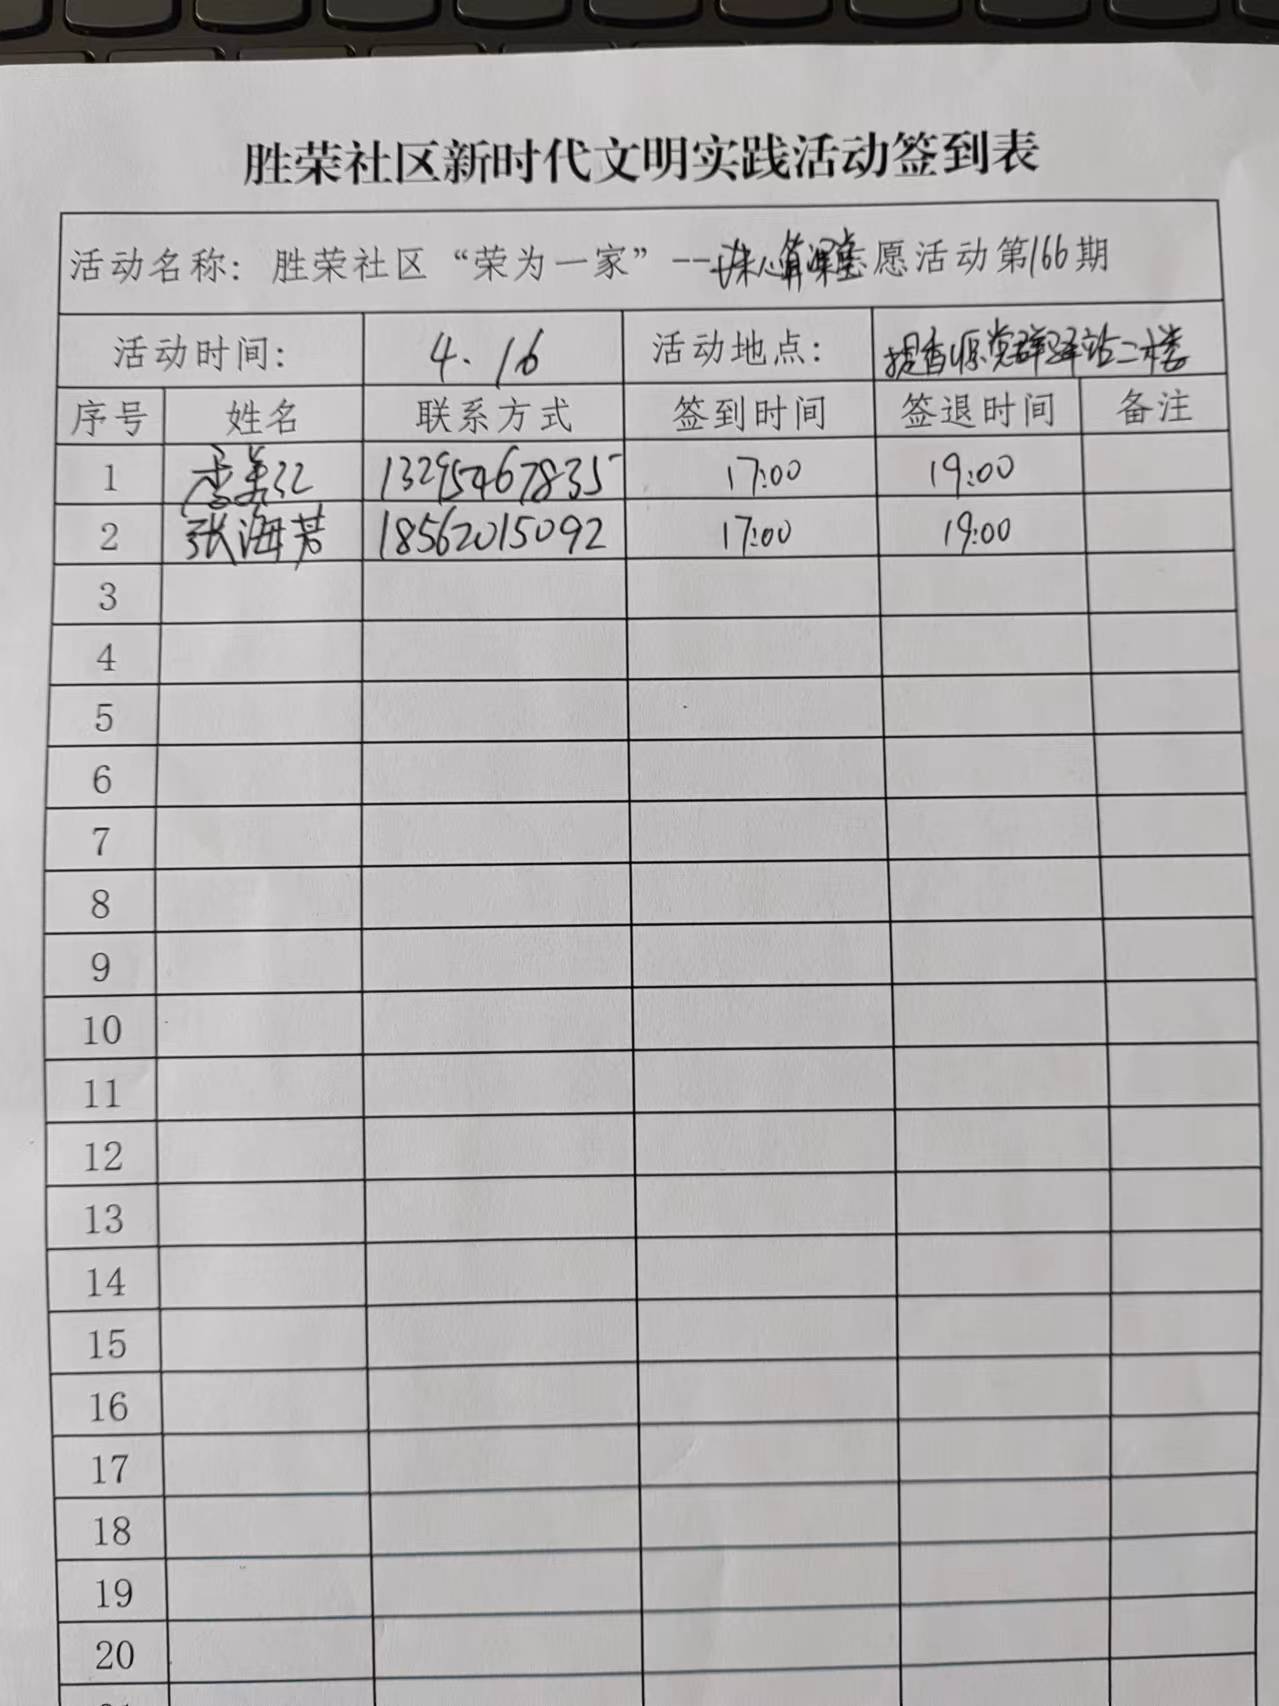 胜荣社区新时代文明实践活动签到表
活动名称：胜荣社区“荣为一家”--珠心算课堂志愿活动第166期
活动时间： 4.16 活动地点： 提香源党群驿站二楼
序号 姓名 联系方式 签到时间 签退时间 备注
1 李美红 13295467835 17:00 19:00
2 张海芳 18562015092 17:00 19:00
3
4
5
6
7
8
9
10
11
12
13
14
15
16
17
18
19
20